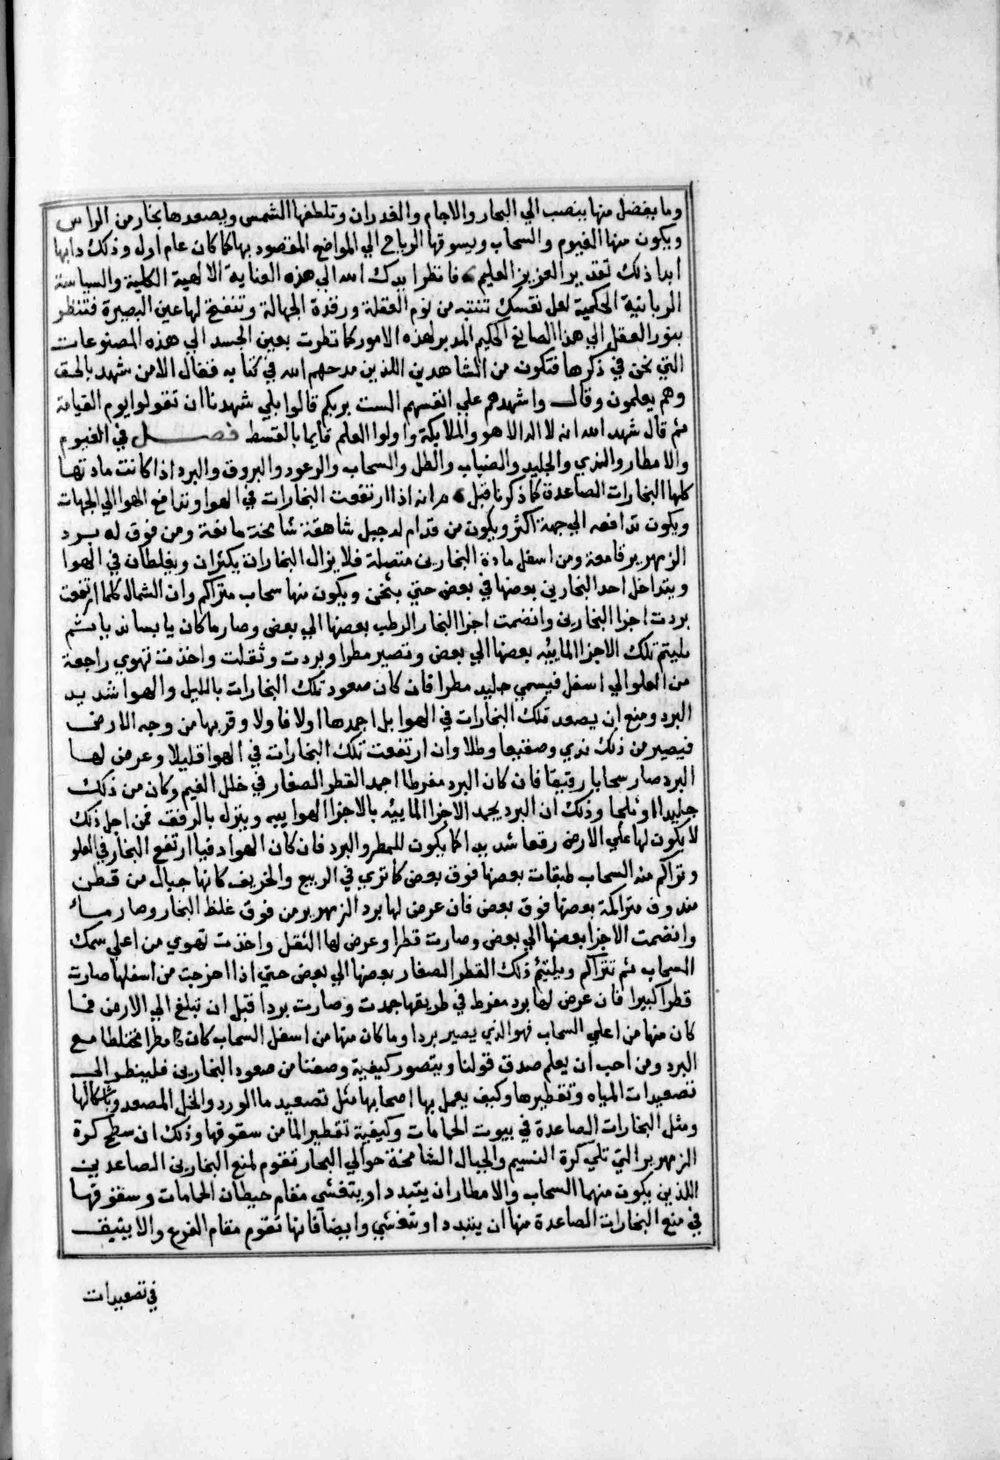 وما يفضل منها ينصب الي البحار والاجام والغدران وتلطفها الشمس ويصعدها بخار من الراس
ويكون منها الغيوم والسحاب ويسوقها الرياح الي المواضع المقصود بها كما كان عام اول وذلك دابها
ابدا ذلك تقدير العزيز العليم فانظر ايدك الله الي هذه العناية الالهية الكلية والسياسة
الربانية الحكمية لعل نفسك تنتبه من نوم الغفلة ورقدة الجهالة وتنفتح لها عين البصيرة فتنظر
بنور العقل الي هذا الصانع الحكيم المدبر لهذه الامور كما نظرت بعين الجسد الي هذه المصنوعات
التي نحن في ذكرها فتكون من الشاهدين اللذين مدحهم الله في كتابه فقال الا من شهد بالحق
وهم يعلمون وقال واشهدهم علي انفسهم الست بربكم قالوا بلي شهدنا ان تقولوا يوم القيامة
ثم قال شهد الله انه لا اله الا هو والملايكة واولوا العلم قايما بالقسط فصل في الغيوم
والامطار والندي والجليد والضباب والطل والسحاب والرعود والبروق والبرد اذا كانت مادتها
كلها البخارات الصاعدة كما ذكرنا قبل مرانه اذا ارتفعت البخارات في الهوا وتدافع الهوا الي الجهات
ويكون تدافعه الي جهة اكثر ويكون من قدام له جبل شاهقة شامخة مانعة ومن فوق له برد
الزمهرير قامعة ومن اسفل مادة البخارين متصلة فلا يزال البخاران يكثران ويغلظان في الهوا
ويتداخل احد البخارين بعضها في بعض حتي يثخن ويكون منها سحاب متراكم وان الشمال كلما ارتفعت
بردت اجزا البخارين وانضمت اجزا البخار الرطب بعضها الي بعض وصار ما كان يابسا ند بابثم
يليتم تلك الاجزا المايّيه بعضها الي بعض وتصير مطرا وبردت وثقلت واخذت تهوي راجعة
من العلو الي اسفل فيسمي حليد مطرا فان كان صعود تلك البخارات بالليل والهوا شديد
البرد ومنع ان يصعد تلك البخارات في الهوا بل اجمدها اولا فاولا وقربها من وجه الارض
فيصير من ذلك ندي وصقيعا وطلا وان ارتفعت تلك البخارات في الهوا قليلا وعرض لها
البرد صار سحابا رقيقا فان كان البرد مفرطا اجمد القطر الصغار في خلل الغيم وكان من ذلك
جليدا او ثلجا وذلك ان البرد يجمد الاجزا المايّيه بالاجزا الهواييه وينزله بالرفق فمن اجل ذلك
لا يكون لها علي الارض رقعا شديدا كما يكون للمطر والبرد فان كان الهوا دفيا ارتفع البخار في العلو
وتراكم منه السحاب طبقات بعضها فوق بعض كما تري في الربيع والخريف كانها جبال من قطن
مندوف متراكمة بعضها فوق بعض فان عرض لها برد الزمهرير من فوق غلظ البخار وصار ماء
وانضمت الاجزا بعضها الي بعض وصارت قطرا وعرض لها الثقل واخذت تهوي من اعلي سمك
السحاب ثم تتراكم ويليتم ذلك القطر الصغار بعضها الي بعض حتي اذا خرجت من اسفلها صارت
قطرا كبيرا فان عرض لها برد مفرط في طريقها جمدت وصارت بردا قبل ان تبلغ الي الارض فما
كان منها من اعلي السحاب فهو الذي يصير بردا وما كان منها من اسفل السحاب كان مطرا مختلطا مع
البرد ومن احب ان يعلم صدق قولنا ويتصور كيفية وصفنا من صعود البخارين فلينظر الي
تصعيدات المياه وتقطيرها وكيف يعمل بها اصحابها مثل تصعيد ما الورد والخل المصعد وشاكلها
ومثل البخارات الصاعدة في بيوت الحمامات وكيفية تقطير الما من سقوفها وذلك ان سطح كرة
الزمهرير التي تلي كرة النسيم والجبال الشامخة حوالي البحار تقوم لمنع البخارين الصاعدين
اللذين يكون منهما السحاب والامطار ان يتبدد او يتفشي مقام حيطان الحمامات وسقوفها
في منع البخارات الصاعدة منها ان يتبدد او يتفشي وايضا فانها تقوم مقام القرع والانبيق
في تصعيدات